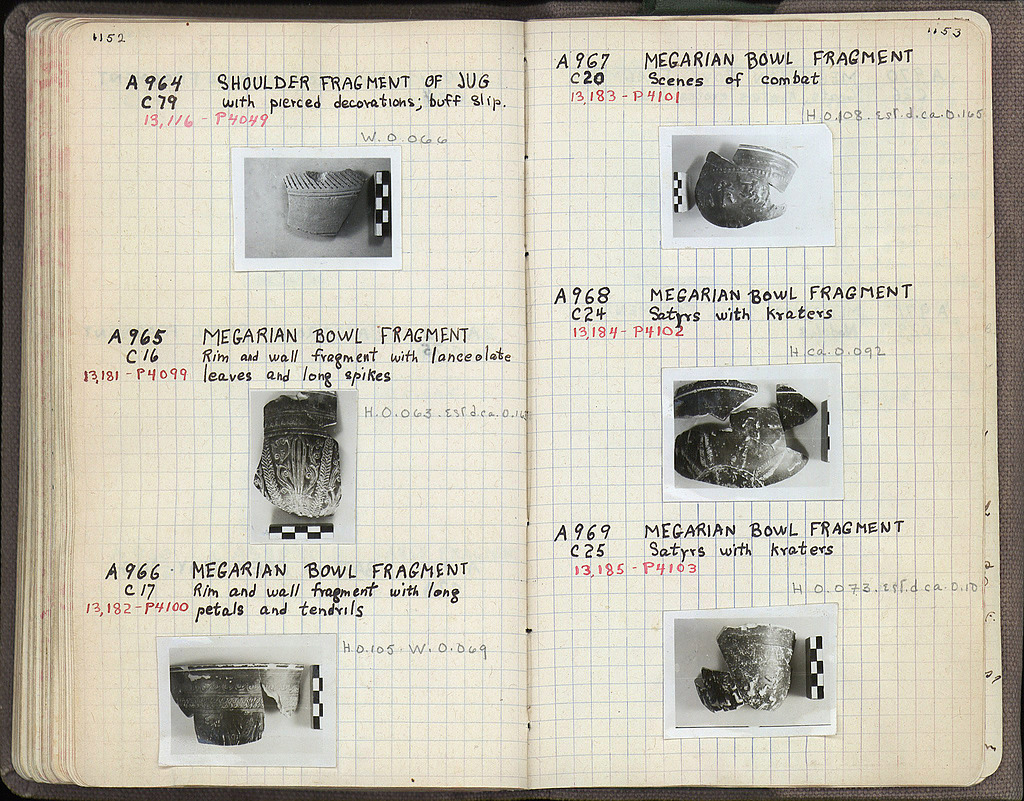 1152
A 964 SHOULDER FRAGMENT OF JUG
C 79 with pierced decorations; buff slip.
13,116 - P4049
W. 0.066
A 965 MEGARIAN BOWL FRAGMENT
C 16 Rim and wall fragment with lanceolate
13,181 - P4099 leaves and long spikes
H. 0.063. Est.d.ca. 0.16
A 966 MEGARIAN BOWL FRAGMENT
C 17 Rim and wall fragment with long
13,182 - P4100 petals and tendrils
H. 0.105. W. 0.069
1153
A 967 MEGARIAN BOWL FRAGMENT
C 20 Scenes of combat
13,183 - P4101
H. 0.108. Est.d.ca. 0.165
A 968 MEGARIAN BOWL FRAGMENT
C 24 Satyrs with kraters
13,184 - P4102
H. ca. 0.092
A 969 MEGARIAN BOWL FRAGMENT
C 25 Satyrs with kraters
13,185 - P4103
H. 0.073. Est.d.ca. 0.10